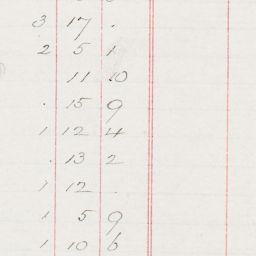 3 17 .
2 5 1
11 10
. 15 9
1 12 4
. 13 2
1 12 .
1 5 9
1 10 6